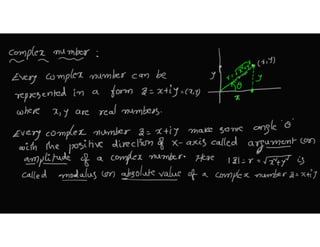 Complex number :
Every complex number can be
represented in a form z = x+iy =(x,y)
where x,y are real numbers.
Every complex number z = x+iy make some angle 'θ'
with the positive direction of x-axis called argument (or)
amplitude of a complex number. Here |z|=r=√x²+y² is
called modulus (or) absolute value of a complex number z=x+iy
(x,y)
r=√x²+y²
y
y
θ
x